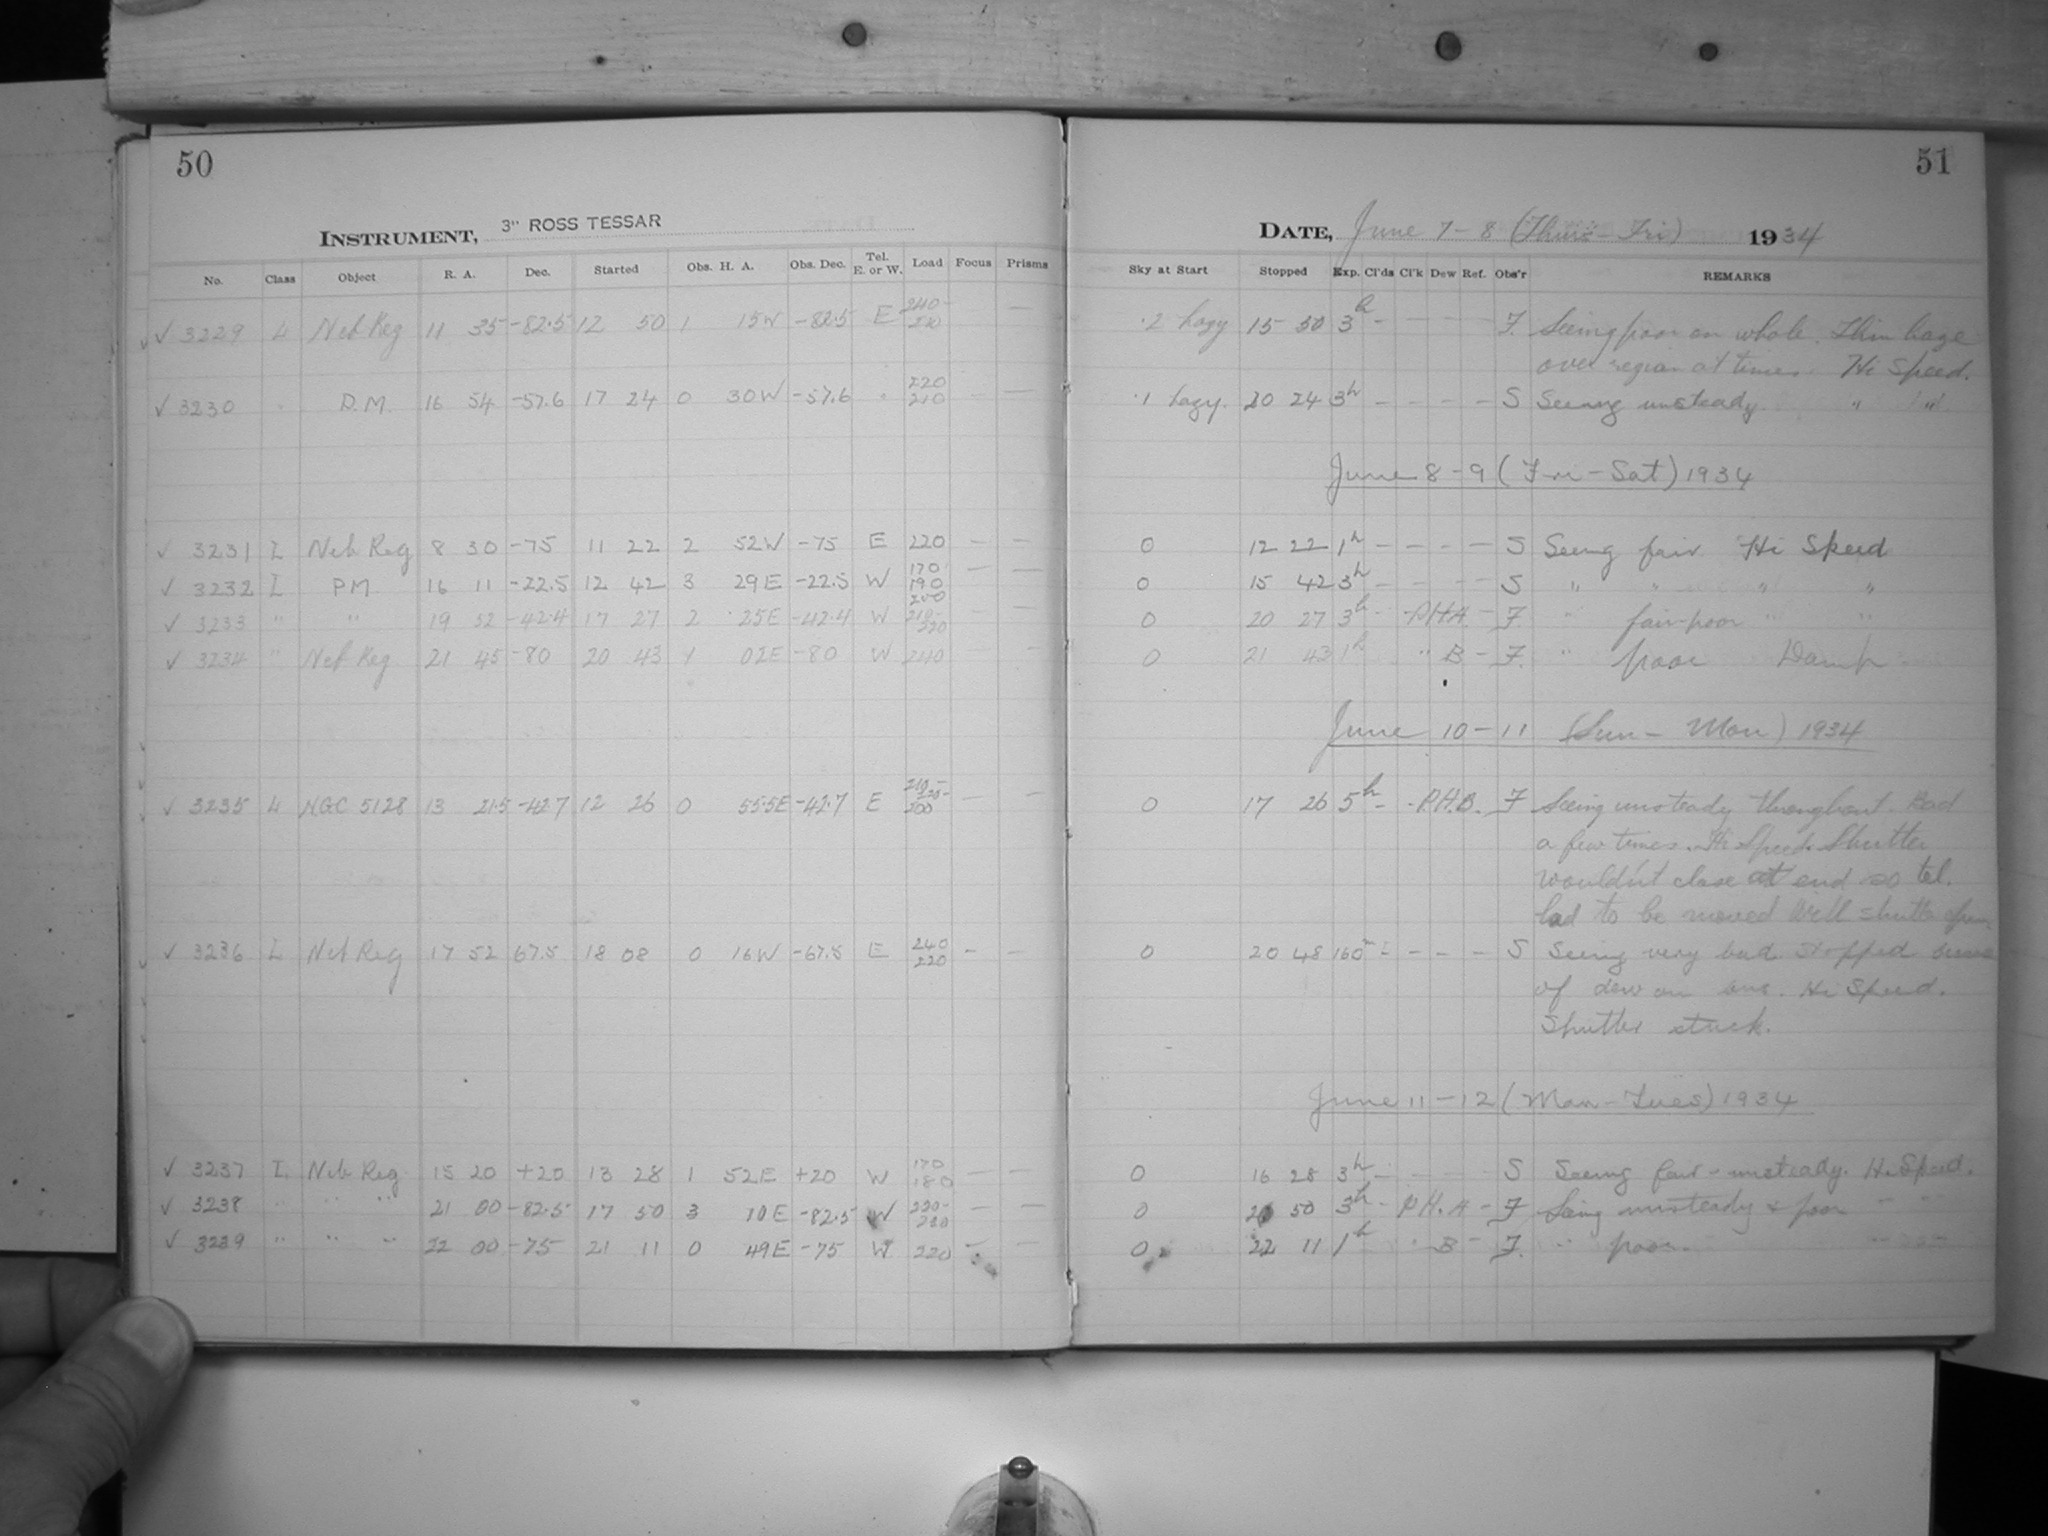 50
INSTRUMENT, 3" ROSS TESSAR
No. Class Object R. A. Dec. Started Obs. H. A. Obs. Dec. Tel. E. or W. Load Focus Prisms
✓ 3229 L Neb Reg 11 35 -82.5 12 50 1 15W -82.5 E 240- 230 —
✓ 3230 D.M. 16 54 -57.6 17 24 0 30W -57.6 " 220 210 — —
✓ 3231 I Neb Reg 8 30 -75 11 22 2 52W -75 E 220 — —
✓ 3232 I PM 16 11 -22.5 12 42 3 29E -22.5 W 170 190 200 — —
✓ 3233 " " 19 52 -42.4 17 27 2 25E -42.4 W 210- 220 — —
✓ 3234 " Neb Reg 21 45 -80 20 43 1 02E -80 W 240 —
✓ 3235 L NGC 5128 13 21.5 -42.7 12 26 0 55.5E -42.7 E 200 — —
✓ 3236 L Neb Reg 17 52 67.5 18 08 0 16W -67.5 E 240 220 — —
✓ 3237 I Neb Reg 15 20 +20 13 28 1 52E +20 W 170 180 — —
✓ 3238 " " " 21 00 -82.5 17 50 3 10E -82.5 W 220- 230 — —
✓ 3239 " " " 22 00 -75 21 11 0 49E -75 W 220 — —
51
DATE, June 7-8 (Thurs-Fri) 1934
Sky at Start Stopped Exp. Cl'ds Cl'k Dew Ref. Obs'r REMARKS
.2 hazy 15 50 3h - - - - F. Seeing poor on whole. Thin haze
over region at times. Hi Speed.
.1 hazy. 20 24 3h - - - - S Seeing unsteady " "
June 8-9 (Fri-Sat) 1934
0 12 22 1h - - - - S Seeing fair Hi Speed
0 15 42 3h - - - - S " " " "
0 20 27 3h - P.H.A - F " fair-poor " "
0 21 43 1h " B - F. " poor Damp
June 10-11 (Sun-Mon) 1934
0 17 26 5h - - P.H.B. F Seeing unsteady throughout. Bad
a few times. Hi Speed. Shutter
wouldn't close at end so tel.
had to be moved with shutter open.
0 20 48 160m - - - - S Seeing very bad. Stopped
of dew on lens. Hi Speed.
Shutter stuck.
June 11-12 (Mon-Tues) 1934
0 16 28 3h - - - - S Seeing fair-unsteady. Hi Speed.
0 20 50 3h - P.H.A - F Seeing unsteady & poor " "
0 22 11 1h " B - F. " poor. " "